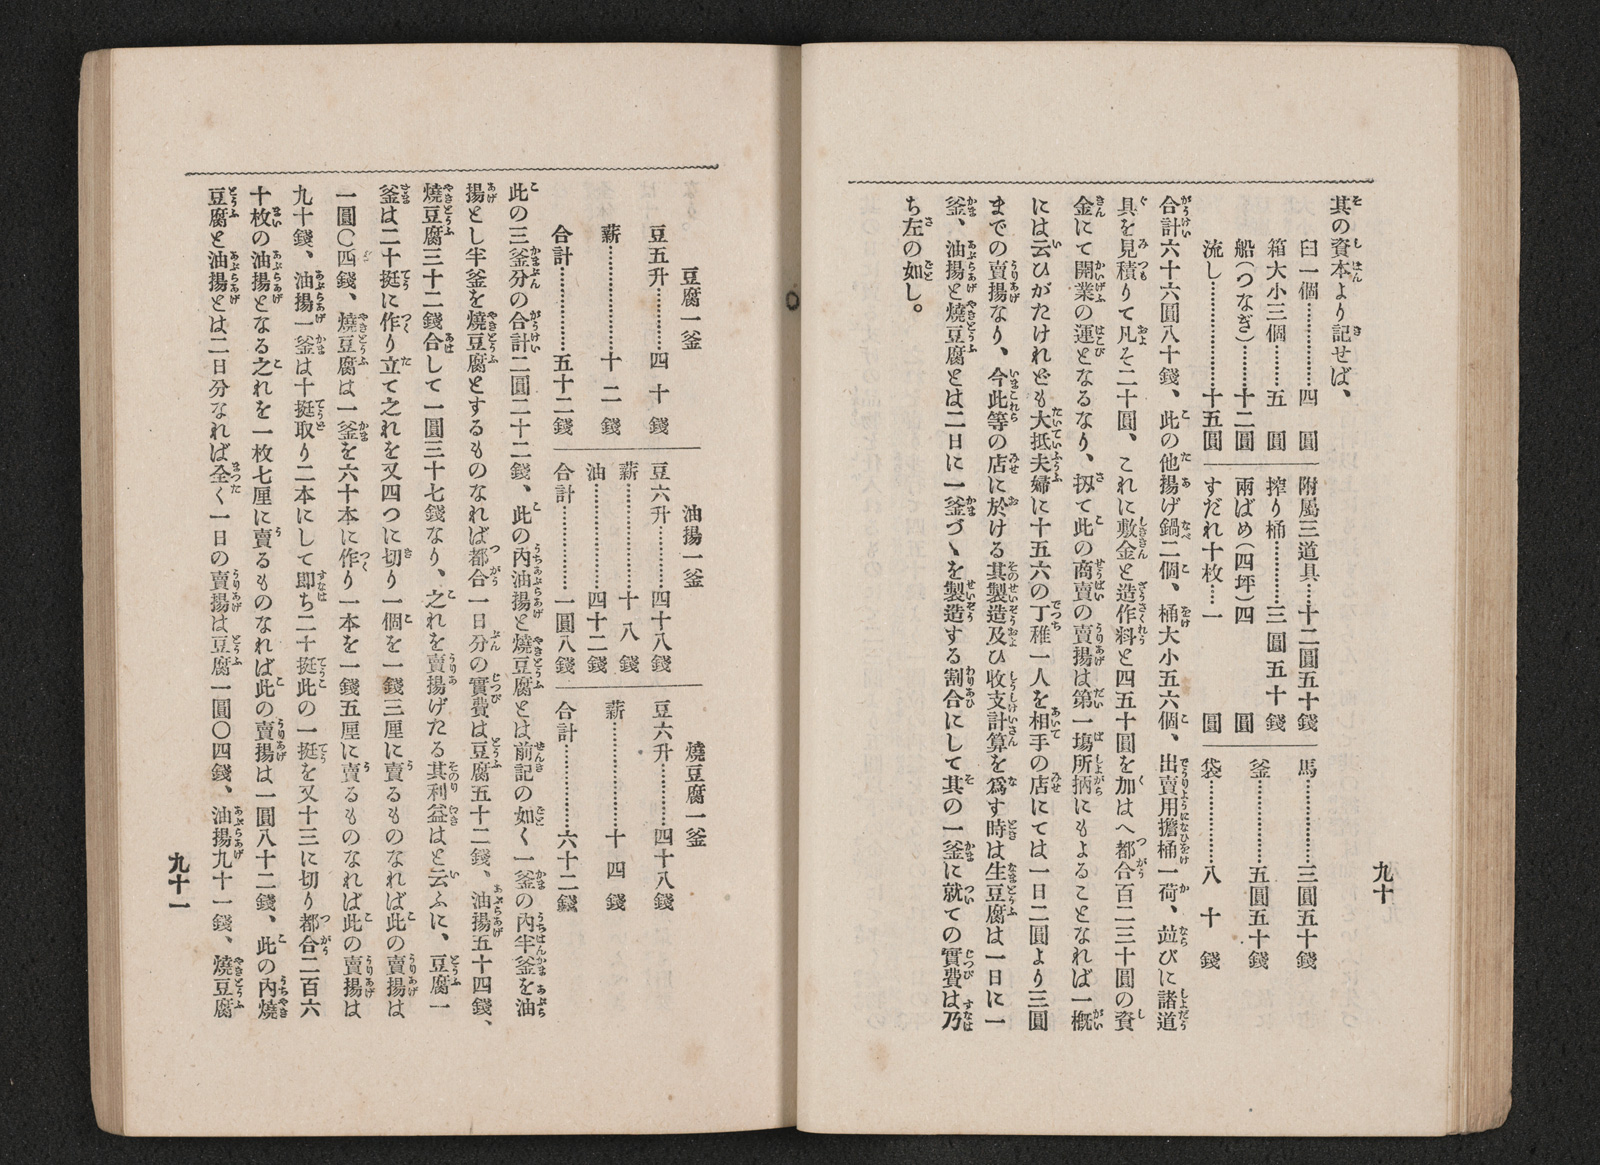 其の資本より記せば、
臼一個……………四圓
箱大小三個………五圓
船(つなぎ)………十二圓
流し………………十五圓
附屬三道具…十二圓五十錢
搾り桶…………三圓五十錢
兩ばめ(四坪)四圓
すだれ十枚…一圓
馬………………三圓五十錢
釜………………五圓五十錢
袋………………八十錢
合計六十六圓八十錢、此の他揚げ鍋二個、桶大小五六個、出賣用擔桶一荷、並びに諸道
具を見積りて凡そ二十圓、これに敷金と造作料と四五十圓を加はへ都合百二三十圓の資
金にて開業の運となるなり、扨て此の商賣の賣揚は第一塲所柄にもよることなれば一概
には云ひがたけれども大抵夫婦に十五六の丁稚一人を相手の店にては一日二圓より三圓
までの賣揚なり、今此等の店に於ける其製造及ひ收支計算を爲す時は生豆腐は一日に一
釜、油揚と燒豆腐とは二日に一釜づゝを製造する割合にして其の一釜に就ての實費は乃
ち左の如し。
九十
豆腐一釜
豆五升…………四十錢
薪………………十二錢
合計……………五十二錢
油揚一釜
豆六升…………四十八錢
薪………………十八錢
油………………四十二錢
合計……………一圓八錢
燒豆腐一釜
豆六升…………四十八錢
薪………………十四錢
合計……………六十二錢
此の三釜分の合計二圓二十二錢、此の内油揚と燒豆腐とは前記の如く一釜の内半釜を油
揚とし半釜を燒豆腐とするものなれば都合一日分の實費は豆腐五十二錢、油揚五十四錢、
燒豆腐三十二錢合して一圓三十七錢なり、之れを賣揚げたる其利益はと云ふに、豆腐一
釜は二十挺に作り立て之れを又四つに切り一個を一錢三厘に賣るものなれば此の賣揚は
一圓〇四錢、燒豆腐は一釜を六十本に作り一本を一錢五厘に賣るものなれば此の賣揚は
九十錢、油揚一釜は十挺取り二本にして即ち二十挺此の一挺を又十三に切り都合二百六
十枚の油揚となる之れを一枚七厘に賣るものなれば此の賣揚は一圓八十二錢、此の内燒
豆腐と油揚とは二日分なれば全く一日の賣揚は豆腐一圓〇四錢、油揚九十一錢、燒豆腐
九十一